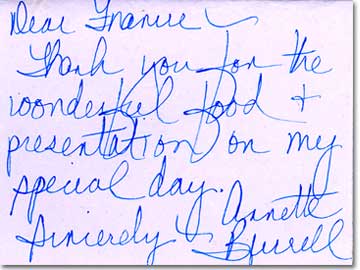 Dear
Thank you for the
wonderful food +
presentation on my
special day.
Sincerely Annette